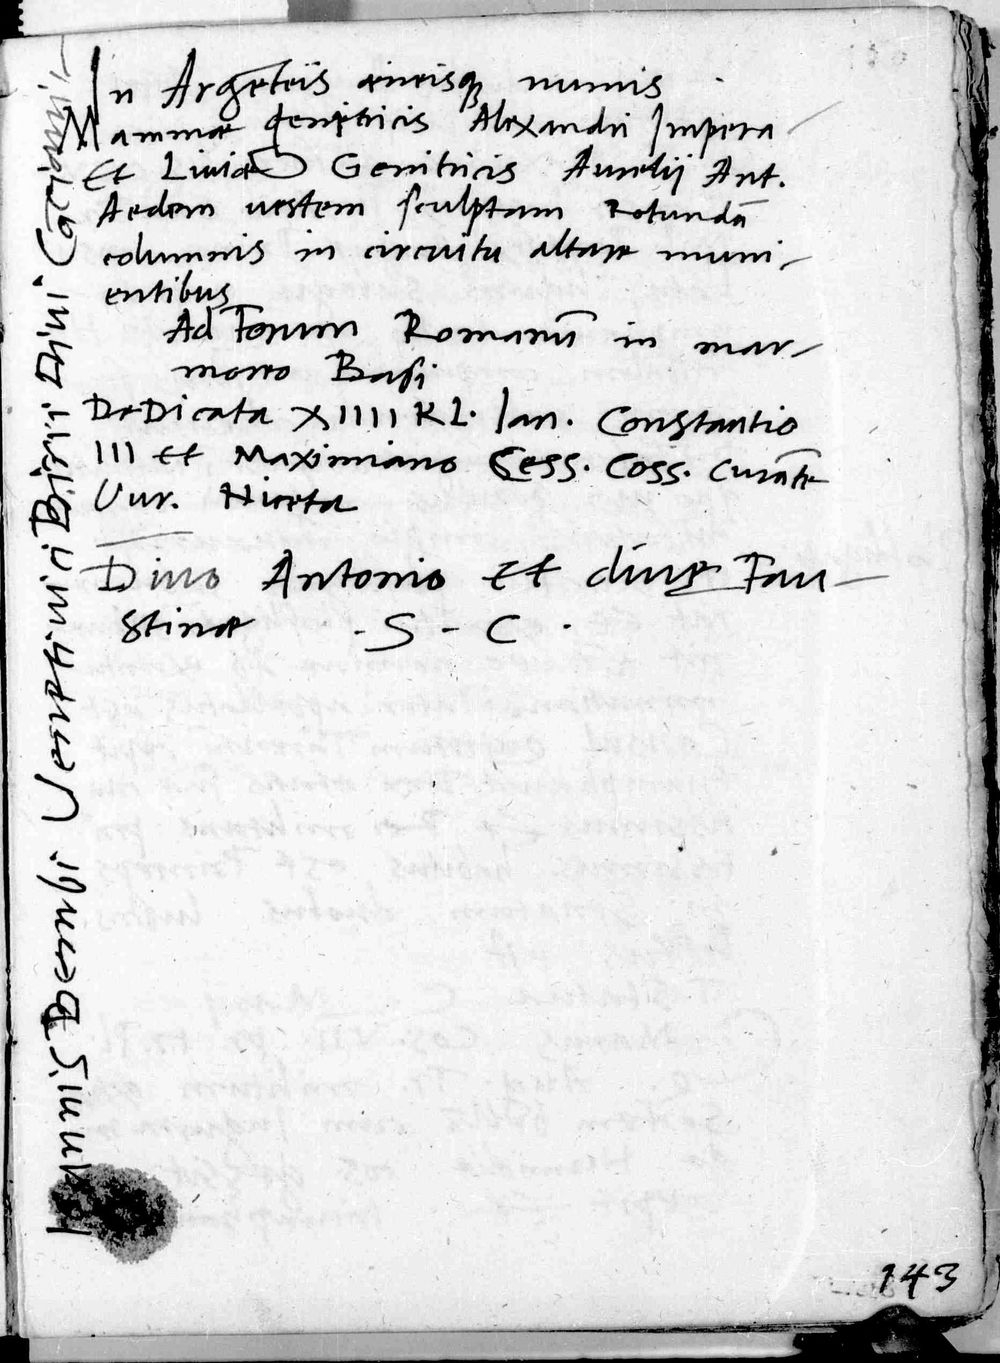 In Argẽteis aeneisq numis
Mammæ genitricis Alexandri Impera
Et Liuiæ Genitricis Aurelij Ant.
Aedem uestem sculptam rotundā
columnis in circuitu altare muni-
entibus
Ad Forum Romanū in mar-
moreo Basi
DeDicata XIIII KL. Ian. Constantio
III et Maximiano Cess. Coss. curāte
Uur. Niceta
Diuo Antonio et diuæ Fau-
stinæ - S - C .
143